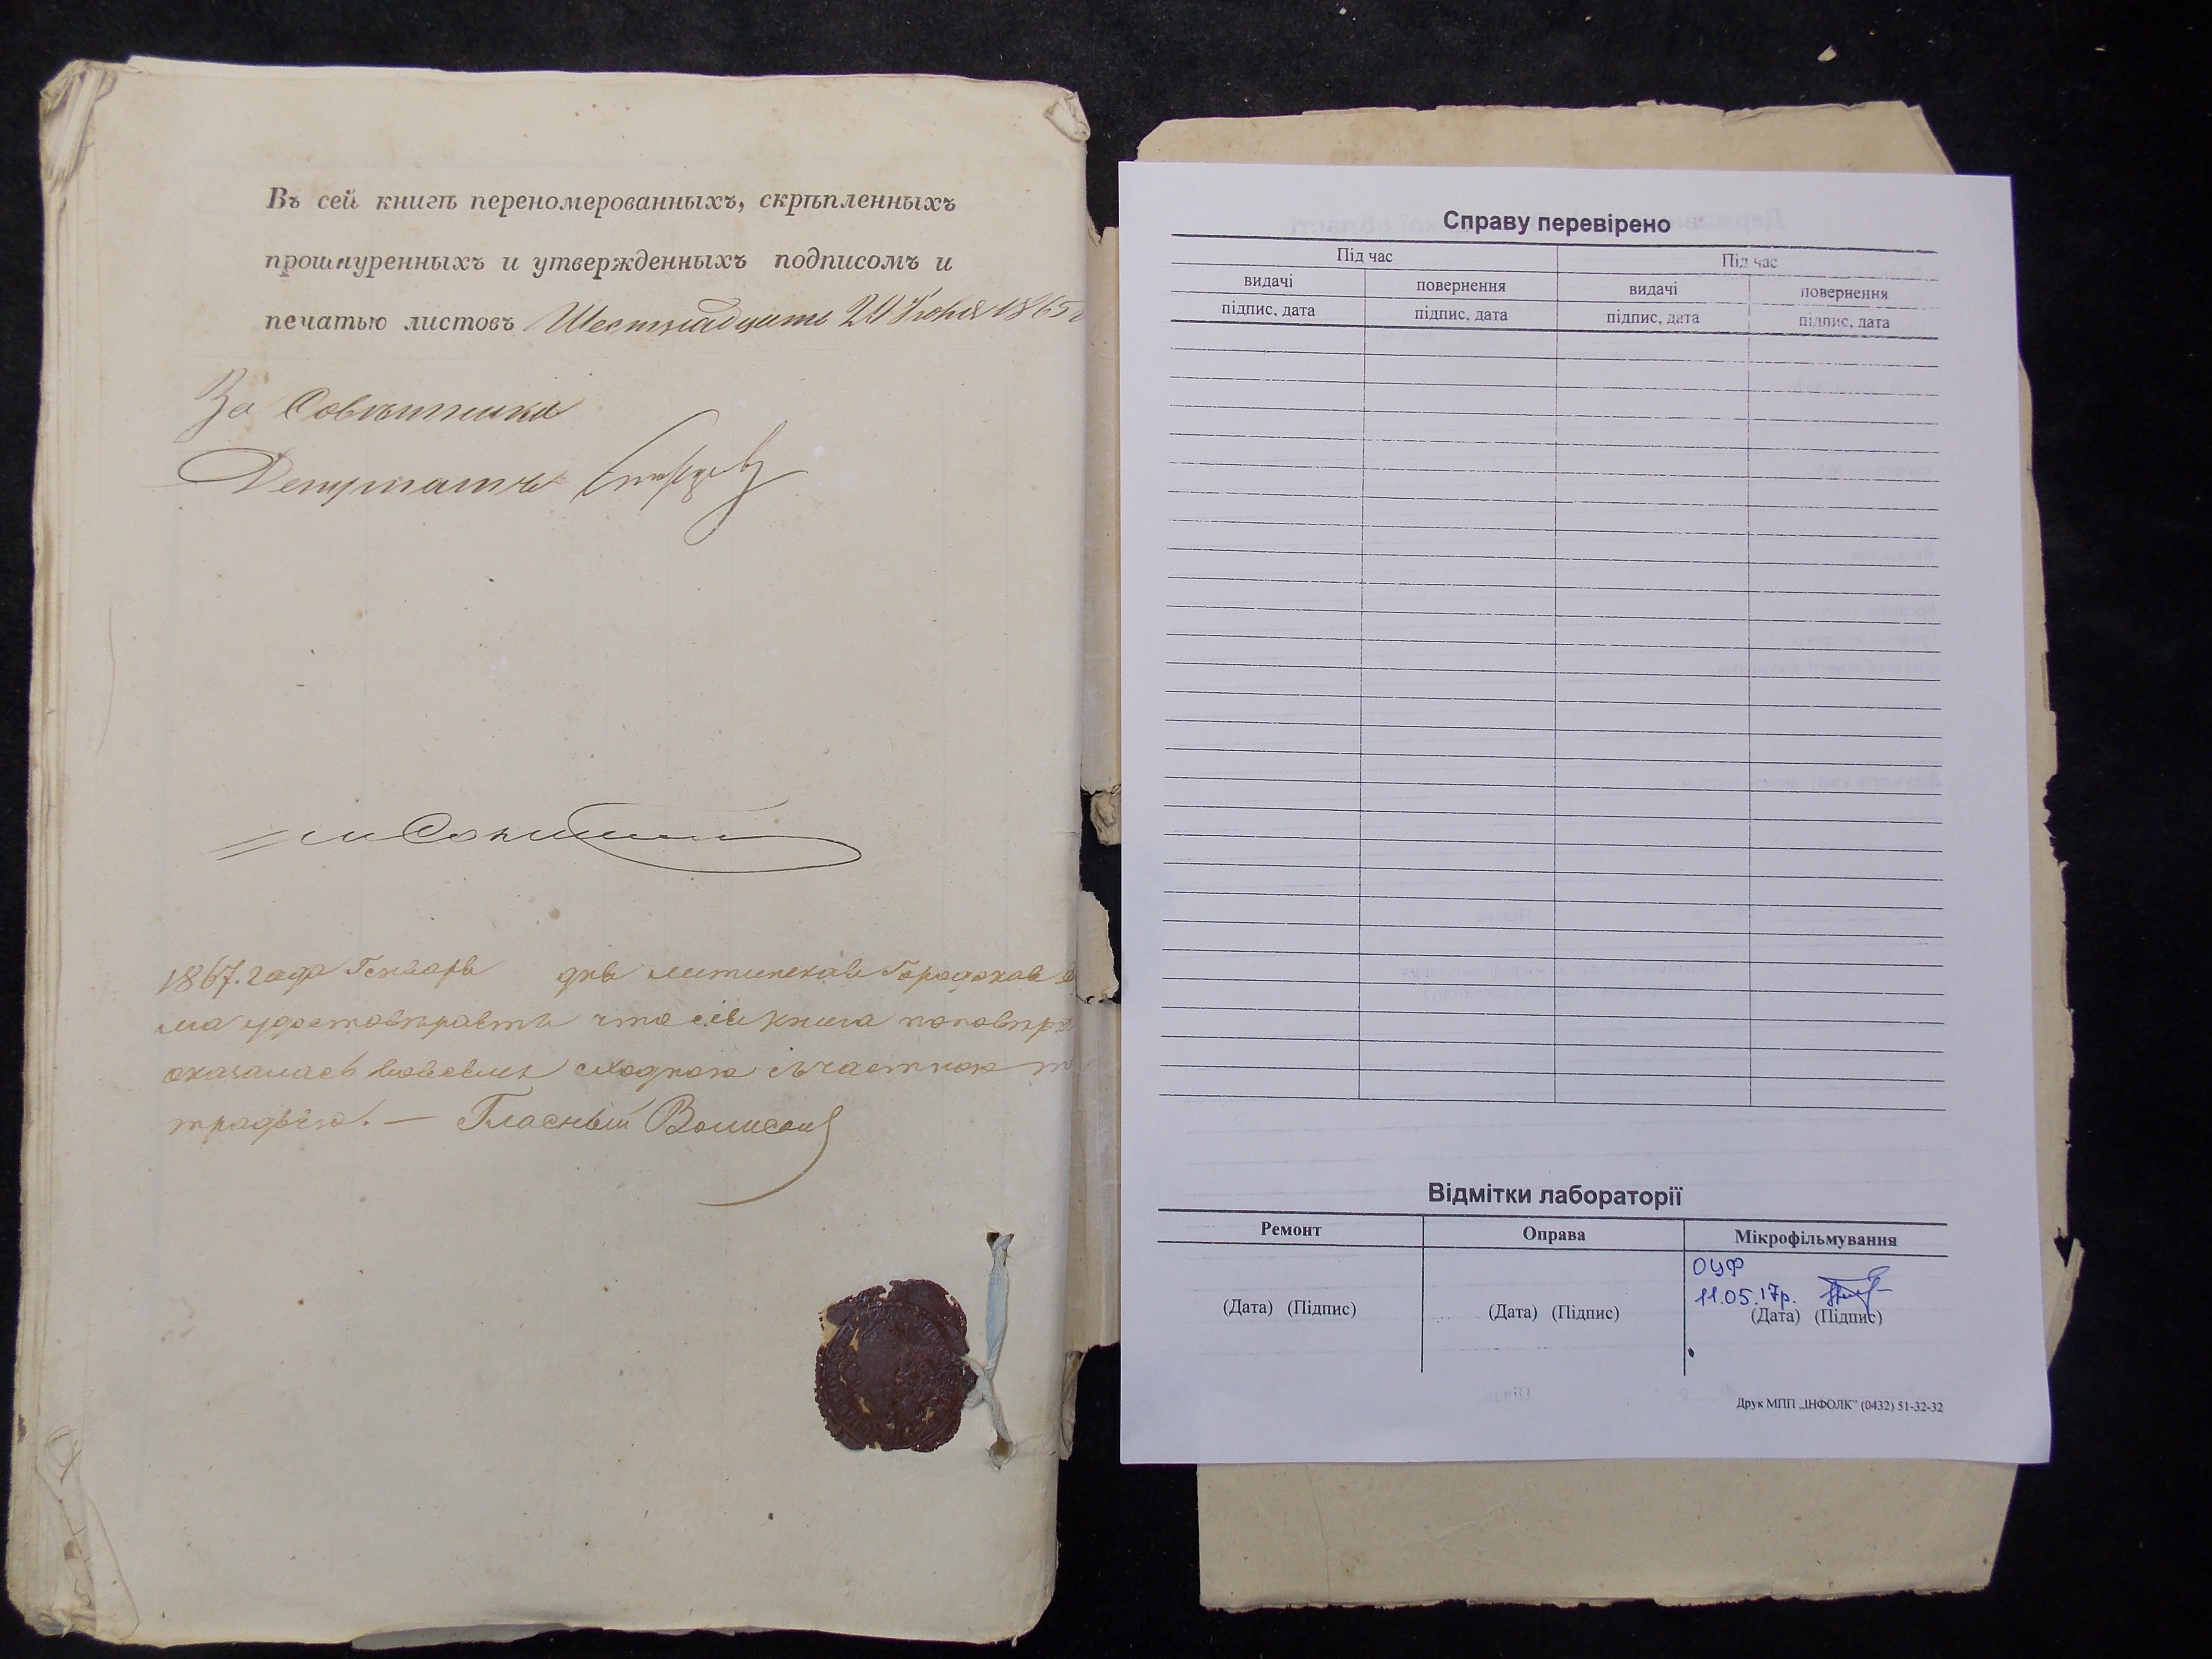 Въ сей книгѣ переномерованныхъ, скрѣпленныхъ
прошнуренныхъ и утвержденныхъ подписомъ и
печатью листовъ Шестнадцать 1865
За Совѣтника
Депутатъ
1867. года Генваря дня Литинская Городская
ма удостовѣряетъ что сія книга
оказалась вовсемъ сходною съ частною
традью. — Гласный
Справу перевірено
Під час Під час
видачі повернення видачі повернення
підпис, дата підпис, дата підпис, дата підпис, дата
Відмітки лабораторії
Ремонт Оправа Мікрофільмування
ОЦФ
11.05.17р.
(Дата) (Підпис) (Дата) (Підпис) (Дата) (Підпис)
Друк МПП „ІНФОЛК” (0432) 51-32-32